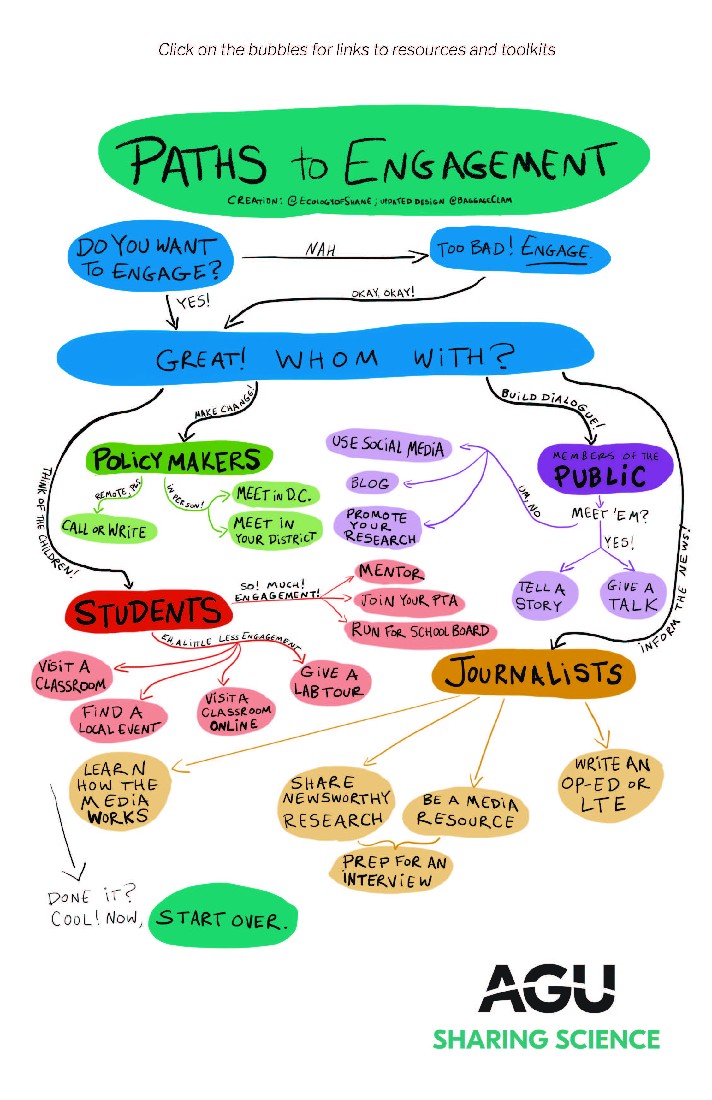 Click on the bubbles for links to resources and toolkits
PATHS to ENGAGEMENT
CREATION: @ECOLOGYOFSHANE; UPDATED DESIGN @BAGGAGECLAM
DO YOU WANT
TO ENGAGE?
NAH
TOO BAD! ENGAGE.
YES!
OKAY, OKAY!
GREAT! WHOM WITH?
MAKE CHANGE!
BUILD DIALOGUE!
THINK OF THE CHILDREN!
INFORM THE NEWS!
POLICY MAKERS
REMOTE, PLS
IN PERSON!
CALL OR WRITE
MEET IN D.C.
MEET IN
YOUR DISTRICT
USE SOCIAL MEDIA
BLOG
PROMOTE
YOUR
RESEARCH
MEMBERS OF THE
PUBLIC
UM, NO
MEET 'EM?
YES!
TELL A
STORY
GIVE A
TALK
STUDENTS
SO! MUCH!
ENGAGEMENT!
MENTOR
JOIN YOUR PTA
RUN FOR SCHOOL BOARD
EH, A LITTLE LESS ENGAGEMENT
VISIT A
CLASSROOM
FIND A
LOCAL EVENT
VISIT A
CLASSROOM
ONLINE
GIVE A
LAB TOUR
JOURNALISTS
LEARN
HOW THE
MEDIA
WORKS
SHARE
NEWSWORTHY
RESEARCH
BE A MEDIA
RESOURCE
PREP FOR AN
INTERVIEW
WRITE AN
OP-ED OR
LTE
DONE IT?
COOL! NOW,
START OVER.
AGU
SHARING SCIENCE